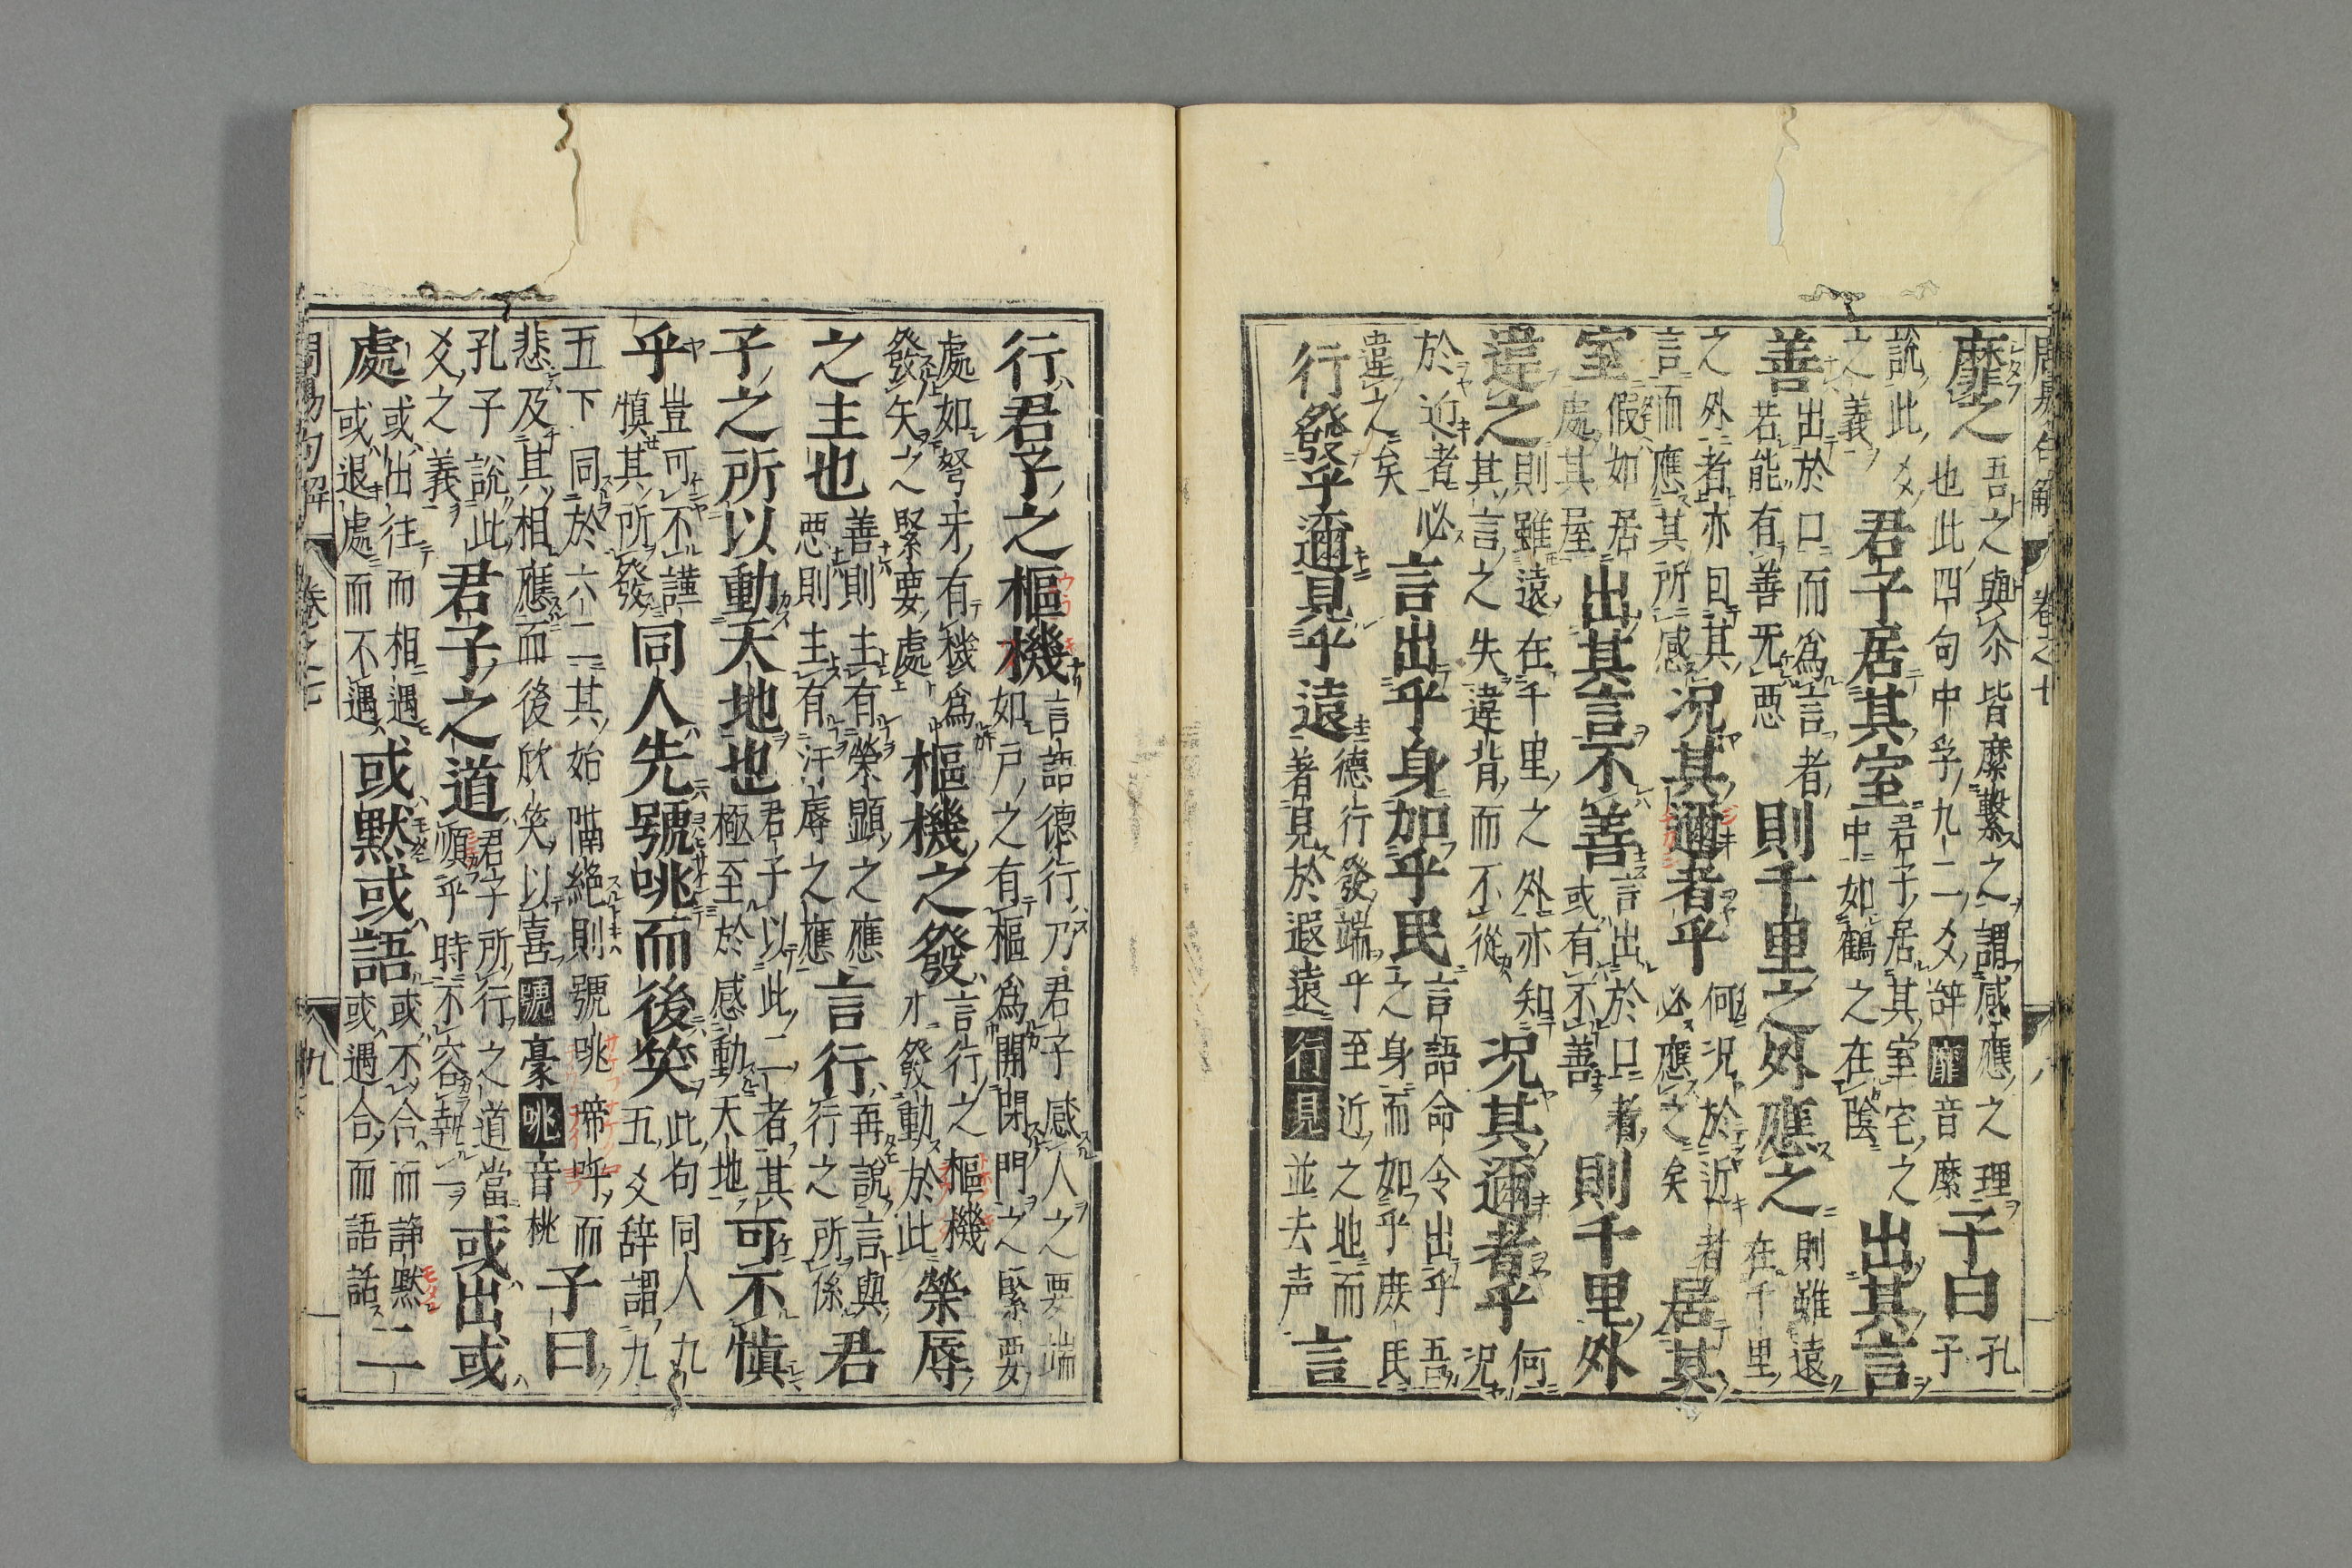 周易句解 卷之七 八
靡之 吾之與尒皆縻繫之謂感應之理 也此四句中孚九二爻辞 靡音縻 子曰 孔子
說此爻之義 君子居其室 君子居其室宅之中如鶴之在陰 出其言
善 出於口而爲言者若能有善旡惡 則千里之外應之 則雖遠在千里
之外者亦囘其言而應其所感 况其邇者乎 何况於近者必應之矣 居其
室 假如居處其屋 出其言不善 言出於口者或有不善 則千里外
違之 則雖遠在千里之外亦知其言之失違背而不從 况其邇者乎 何况
於近者必違之矣 言出乎身加乎民 言語命令出乎吾之身而加乎庶民
行發乎邇見乎遠 德行發端乎至近之地而著見於遐遠 行見並去声 言
行君子之樞機 言語德行乃君子感人之要端如戸之有樞爲開閉門之緊要
處如弩牙有機爲發矢之緊要處 樞機之發 言行之樞機才發動於此 榮辱
之主也 善則主有榮顯之應惡則主有汙辱之應 言行 再說言與行之所係 君
子之所以動天地也 君子以此二者其極至於感動天地 可不慎
乎 豈可不謹慎其所發 同人先號咷而後笑 此句同人九五爻辞謂九
五下同於六二其始隔絶則號咷啼呼而悲及其相應而後欣笑以喜 號豪咷音桃 子曰
孔子說此爻之義 君子之道 君子所行之道當順乎時不容執一 或出或
處 或出往而相遇或退處而不遇 或默或語 或不合而靜默或遇合而語話 二
周易句解 卷之七 九